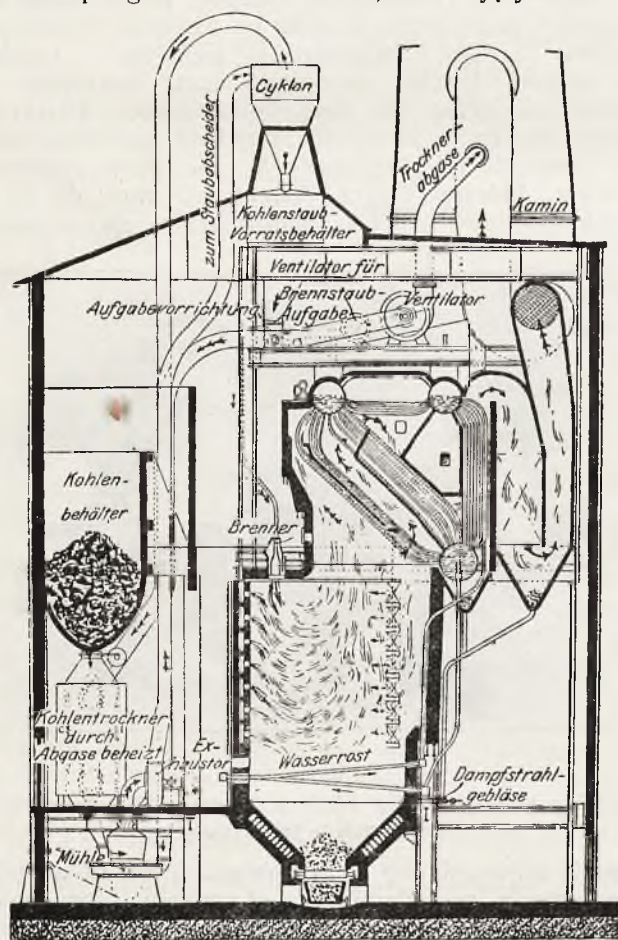 Cyklon
zum Staubabscheider
Trockner-
abgase
Kamin
Kohlenstaub-
Vorratsbehälter
Ventilator für
Aufgabevorrichtung
Brennstaub-
Aufgabe
Ventilator
Kohlen-
behälter
Brenner
Kohlentrockner
durch
Abgase beheizt
Ex-
haustor
Wasserrost
Dampfstrahl-
gebläse
Mühle